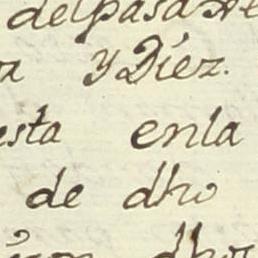 del pasa
y Diez.
esta enla
de dho